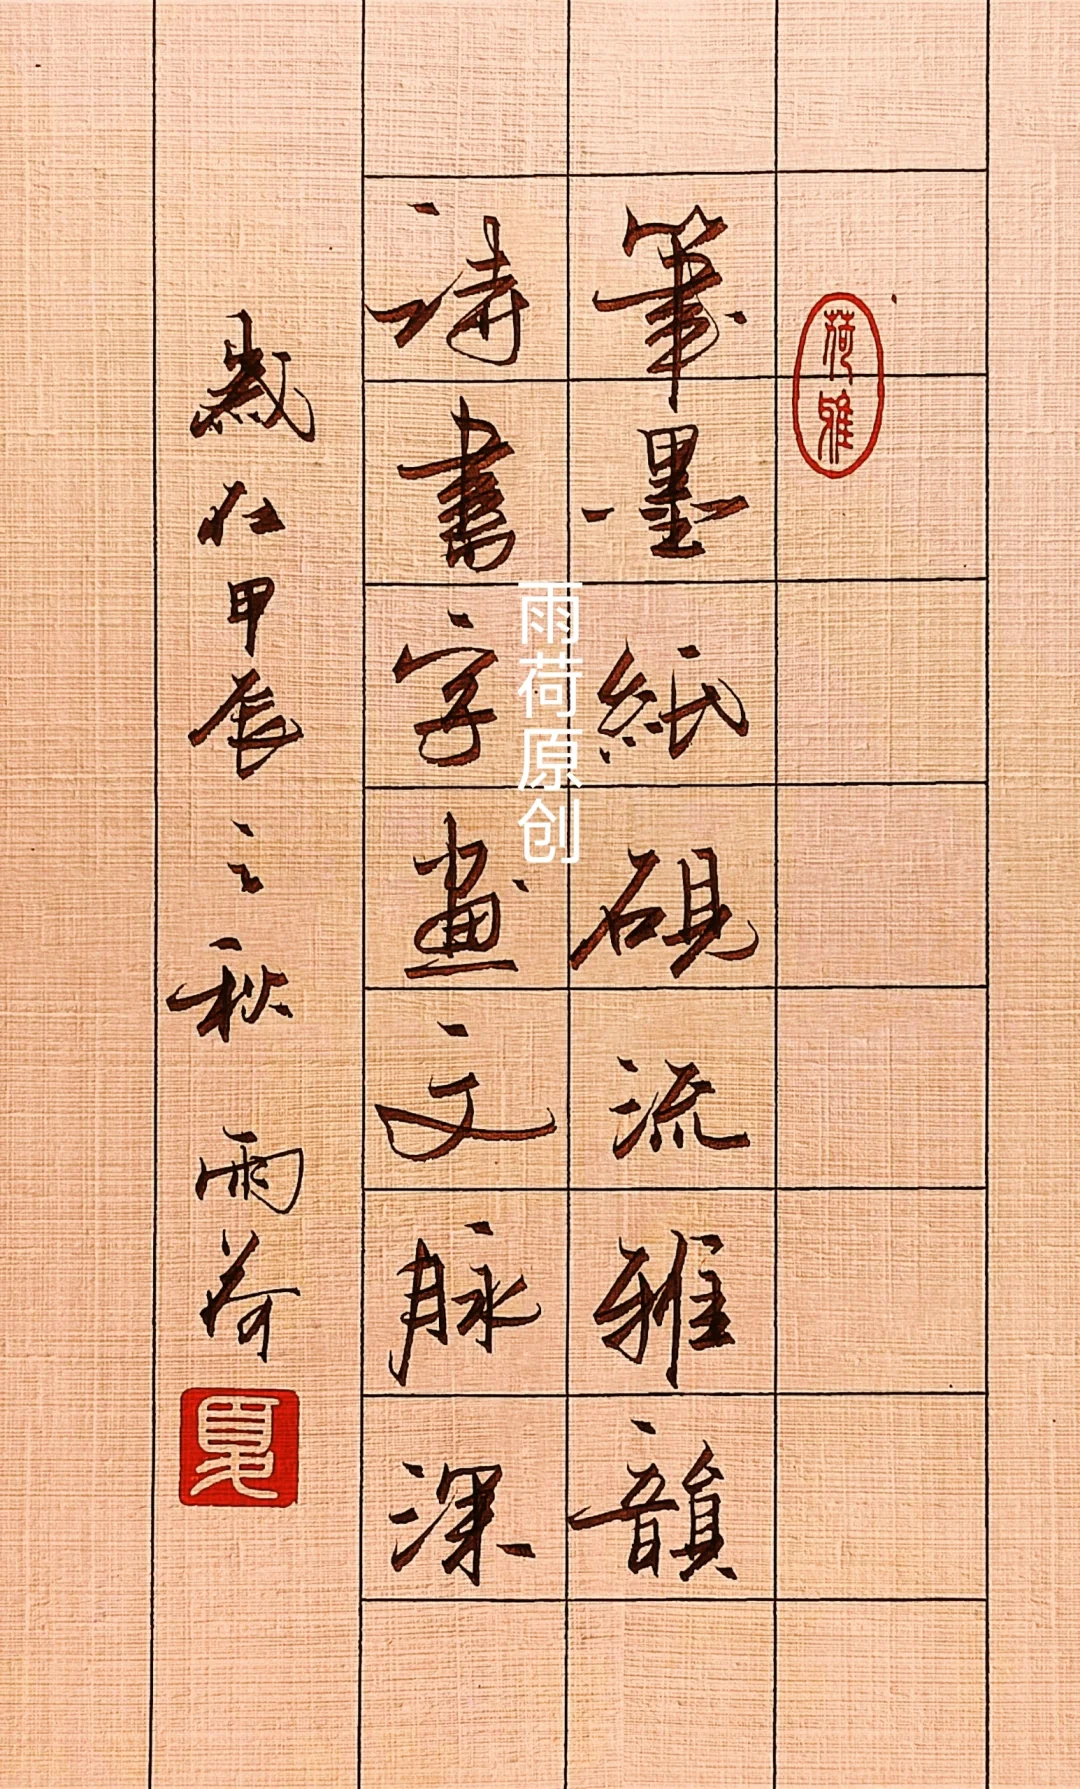 荷雅
筆墨紙硯流雅韻
詩書字畫文脉深
歲在甲辰之秋 雨荷
夏
雨荷原创